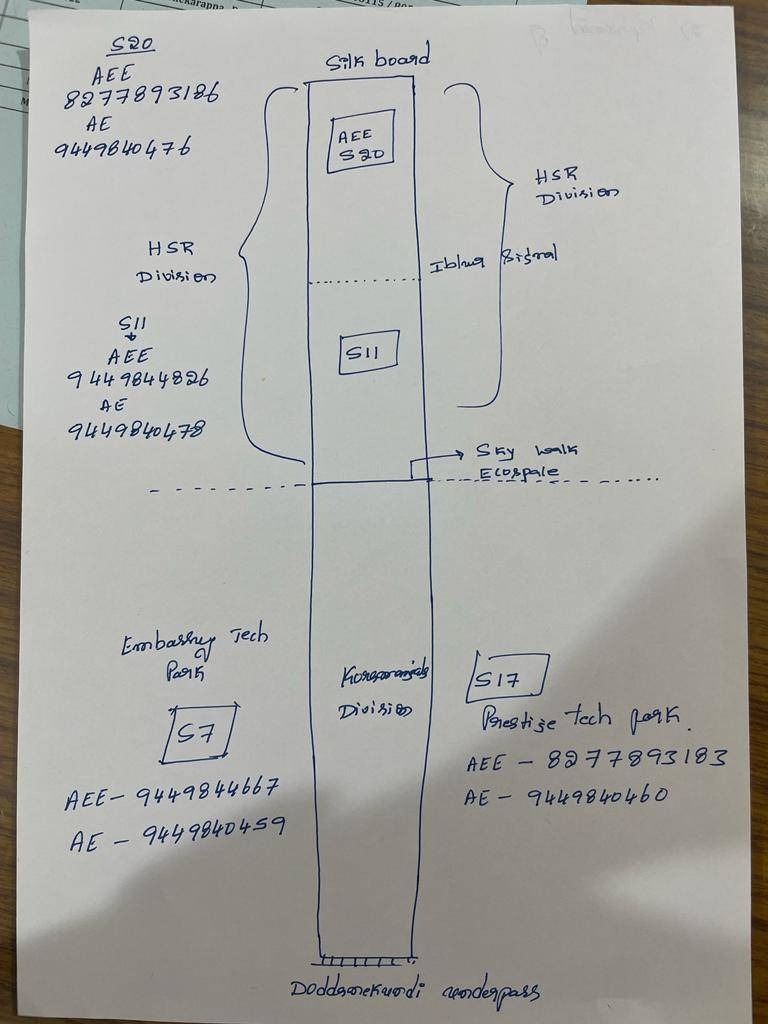 S20
AEE
8277893186
AE
9449840476
Silk board
AEE
S20
HSR
Division
HSR
Division
Iblur Signal
S11
AEE
9449844826
AE
9449840478
S11
Sky walk
Ecospale
Embassy Tech
Park
S7
AEE - 9449844667
AE - 9449840459
Koramangala
Division
S17
Prestige tech park.
AEE - 8277893183
AE - 9449840460
Doddanekundi underpass